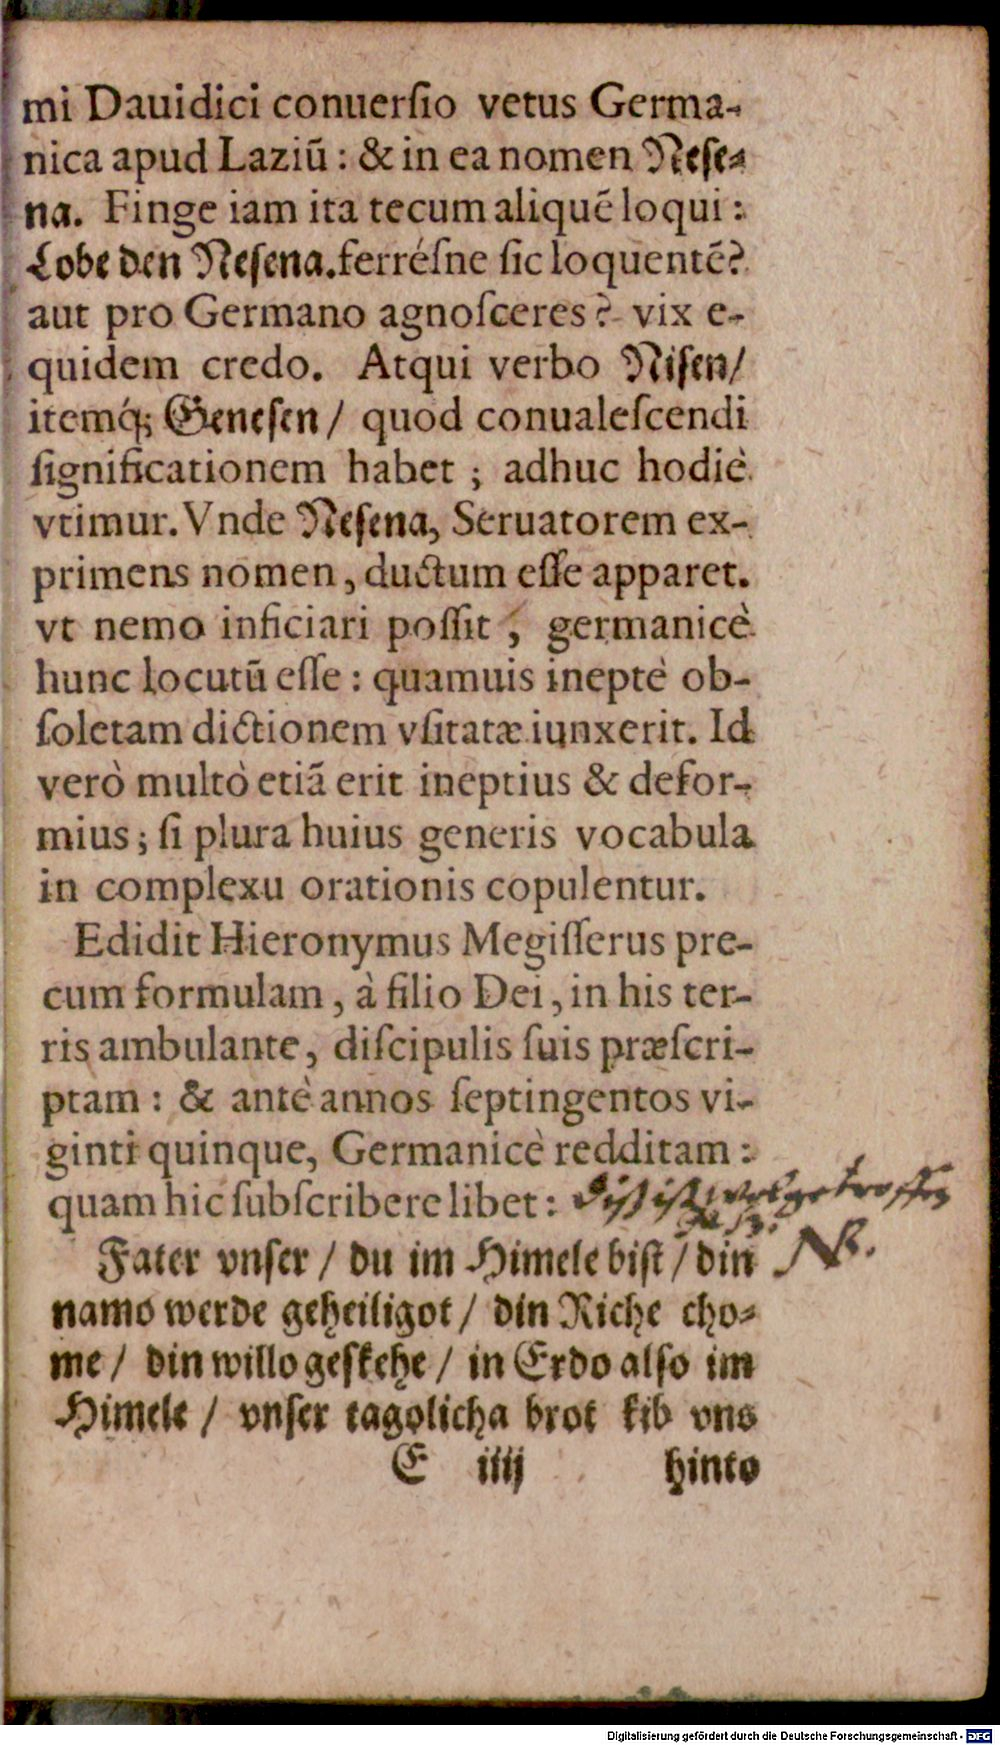 mi Dauidici conuerſio vetus Germa-
nica apud Laziū : & in ea nomen Neſe⸗
na. Finge iam ita tecum aliquē loqui :
Lobe den Neſena. ferréſne ſic loquentē?
aut pro Germano agnoſceres? vix e-
quidem credo. Atqui verbo Niſen/
itemq́; Geneſen / quod conualeſcendi
ſignificationem habet ; adhuc hodiè
vtimur. Vnde Neſena, Seruatorem ex-
primens nomen, ductum eſſe apparet.
vt nemo inficiari poſſit , germanicè
hunc locutū eſſe : quamuis ineptè ob-
ſoletam dictionem vſitatæ iunxerit. Id
verò multò etiā erit ineptius & defor-
mius ; ſi plura huius generis vocabula
in complexu orationis copulentur.
Edidit Hieronymus Megiſſerus pre-
cum formulam, à filio Dei, in his ter-
ris ambulante, diſcipulis ſuis præſcri-
ptam : & antè annos ſeptingentos vi-
ginti quinque, Germanicè redditam :
quam hic ſubſcribere libet : Diſ iſt wol getroffen
NB.
Fater vnſer / du im Himele biſt / din
namo werde geheiligot / din Riche cho⸗
me / din willo geſkehe / in Erdo alſo im
Himele / vnſer tagolicha brot kib vns
E iiij hinto
Digitalisierung gefördert durch die Deutsche Forschungsgemeinschaft - DFG